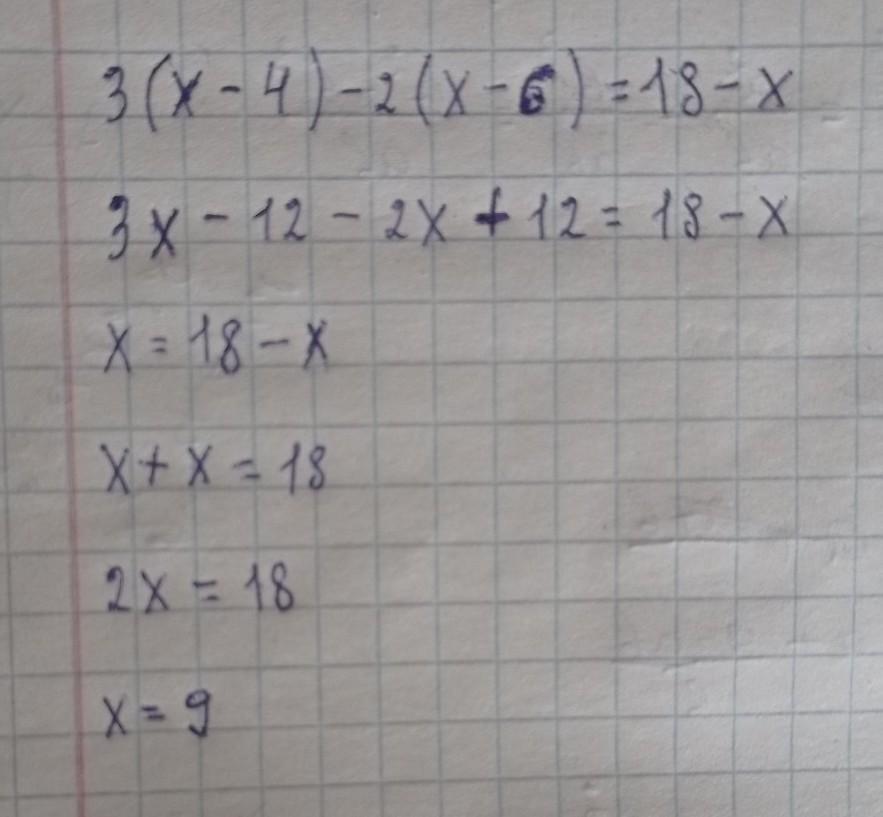 3(x-4)-2(x-6)=18-x
3x-12-2x+12=18-x
x=18-x
x+x=18
2x=18
x=9